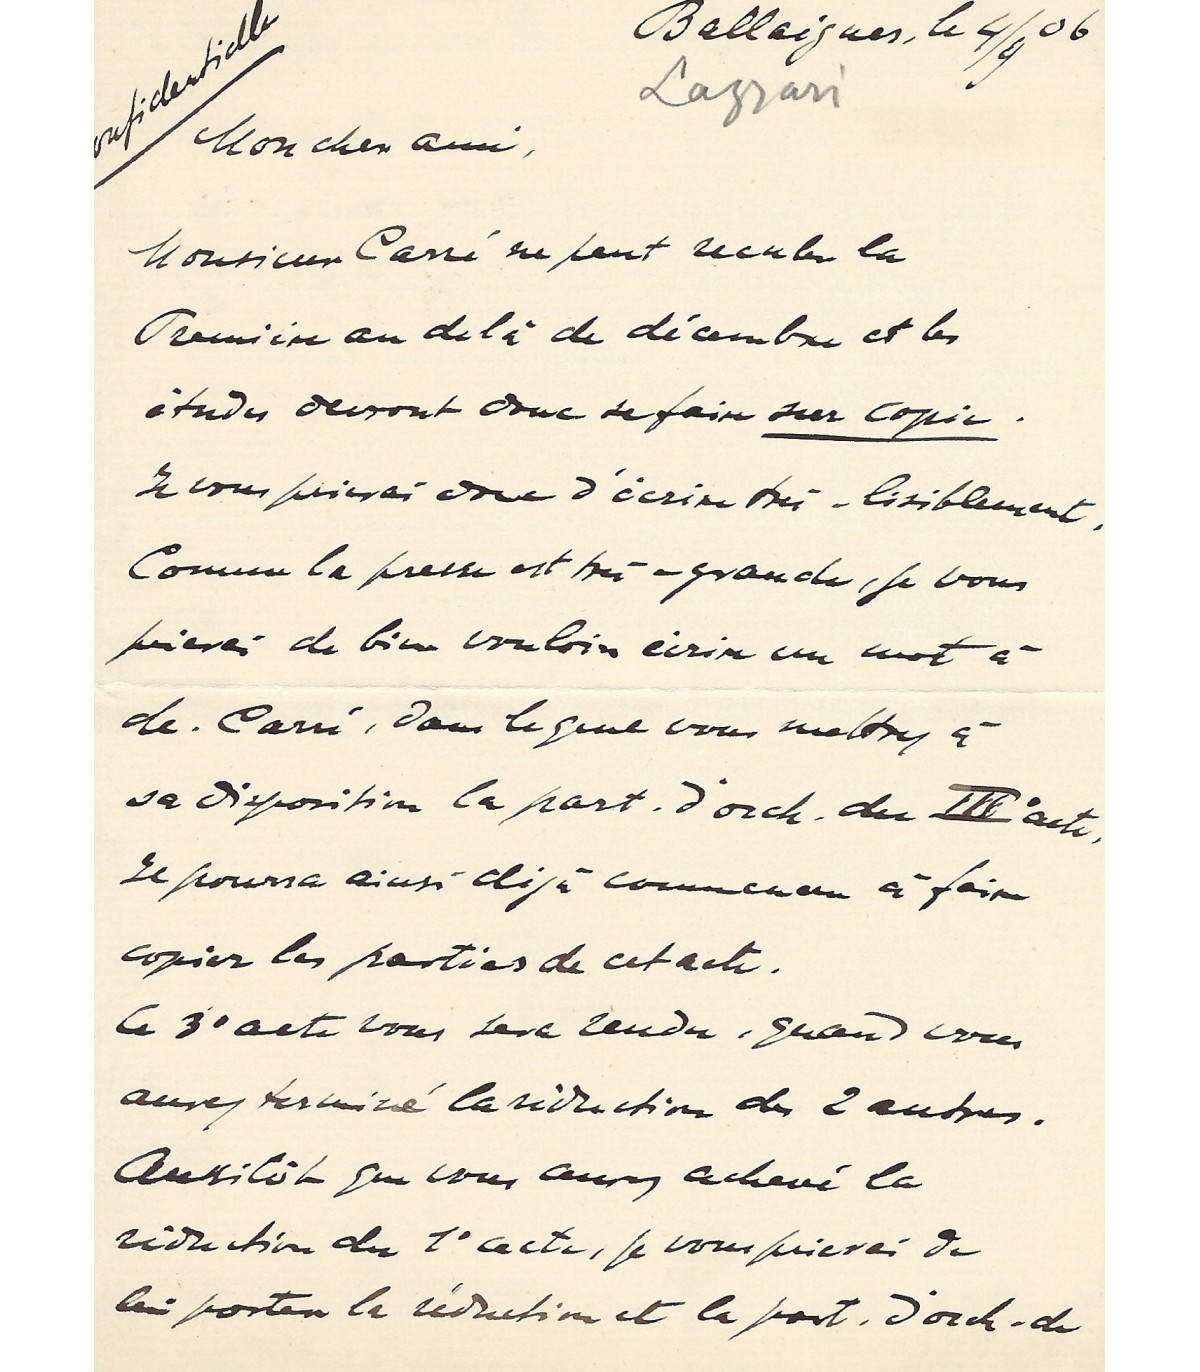 Ballaigues, le 4/9 06
Lazzari
onfidentielle
Mon cher ami,
Monsieur Carré ne peut reculer la
Première au delà de décembre et les
études devront donc se faire sur copie.
Je vous prierai donc d'écrire très-lisiblement,
Comme la presse est très-grande, je vous
prierai de bien vouloir écrire un mot à
de. Carré, dans lequel vous mettrez à
sa disposition la part. d'orch. du III° acte,
Je pourra ainsi déjà commencer à faire
copier les parties de cet acte.
Ce 3° acte vous sera rendu, quand vous
aurez terminé la réduction des 2 autres.
Aussitôt que vous aurez achevé la
réduction du 1° acte, je vous prierai de
lui porter la réduction et la part. d'orch. de